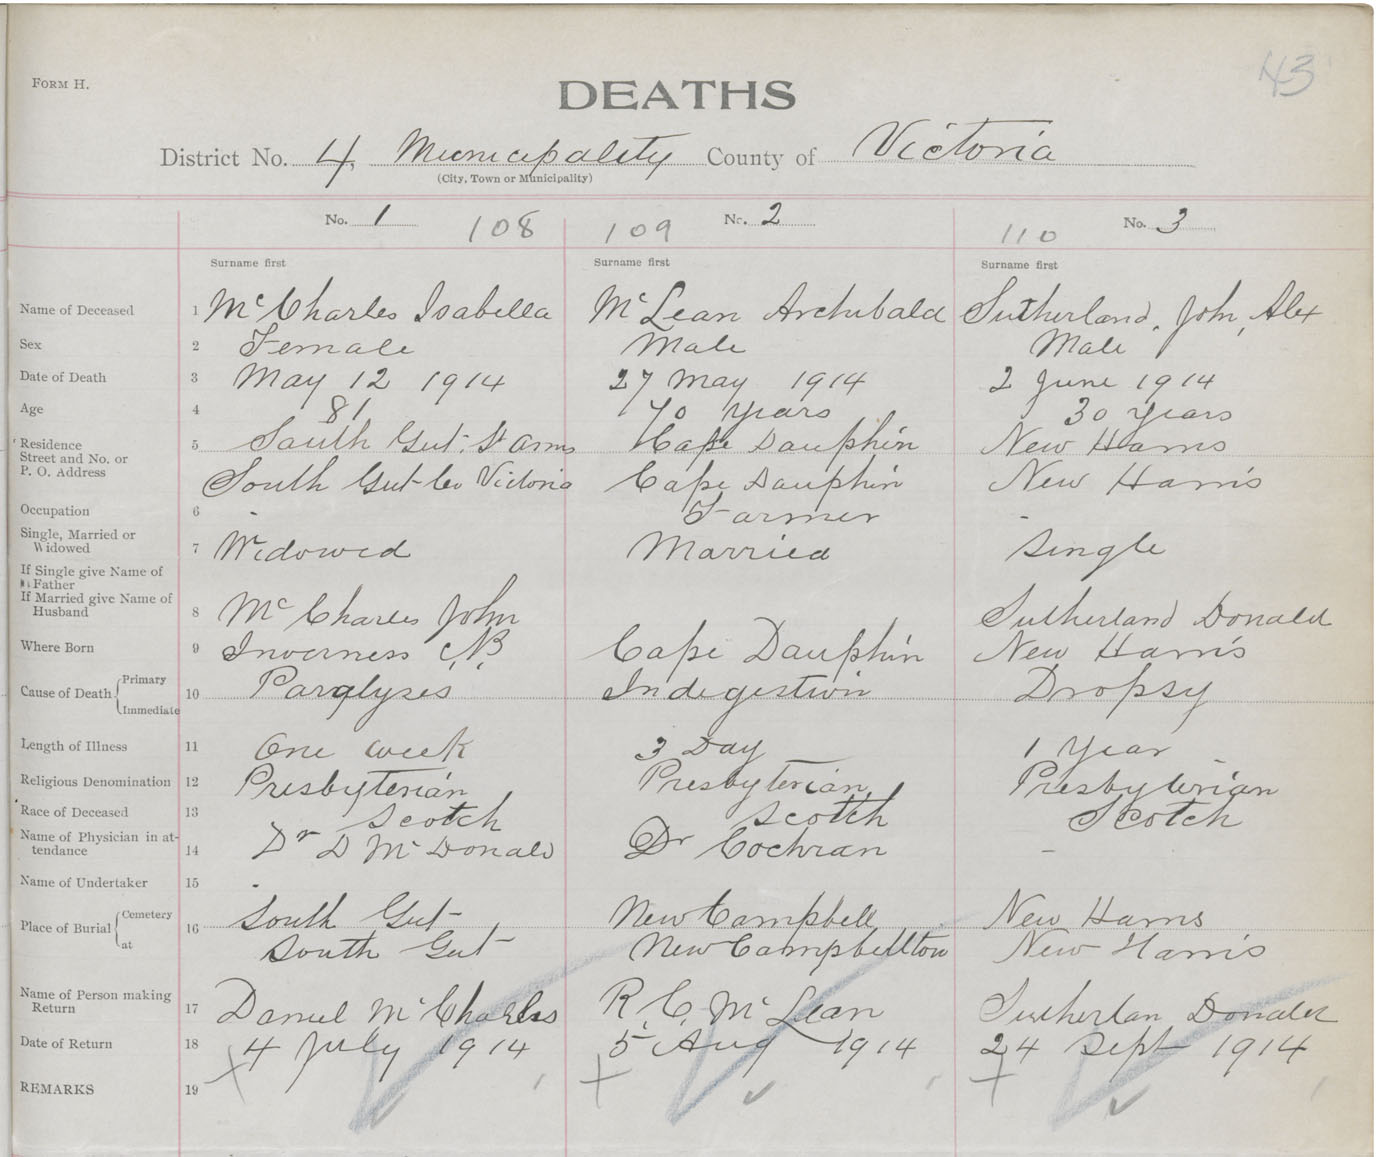 43
FORM H.
DEATHS
District No. 4, Municipality County of Victoria
(City, Town or Municipality)
No. 1 108 109 No. 2 110 No. 3
Surname first Surname first Surname first
Name of Deceased 1 McCharles Isabella McLean Archibald Sutherland, John, Alex
Sex 2 Female Male Male
Date of Death 3 May 12 1914 27 May 1914 2 June 1914
Age 4 81 70 years 30 years
Residence 5 South Gut. St Anns Cape Dauphin New Harris
Street and No. or
P. O. Address South Gut Co Victoria Cape Dauphin New Harris
Occupation 6 - Farmer -
Single, Married or
Widowed 7 Widowed Married Single
If Single give Name of
Father
If Married give Name of
Husband 8 McCharles John Sutherland Donald
Where Born 9 Inverness C.B. Cape Dauphin New Harris
Cause of Death Primary
Immediate 10 Paralyses Indegestion Dropsy
Length of Illness 11 One week 3 Day 1 Year
Religious Denomination 12 Presbyterian Presbyterian Presbyterian
Race of Deceased 13 Scotch Scotch Scotch
Name of Physician in at-
tendance 14 Dr D McDonald Dr Cochran -
Name of Undertaker 15 -
Place of Burial Cemetery 16 South Gut New Campbell New Harris
at South Gut New Campbellton New Harris
Name of Person making
Return 17 Daniel McCharles R. C. McLean Sutherlan Donald
Date of Return 18 4 July 1914 5 Aug 1914 24 Sept 1914
REMARKS 19